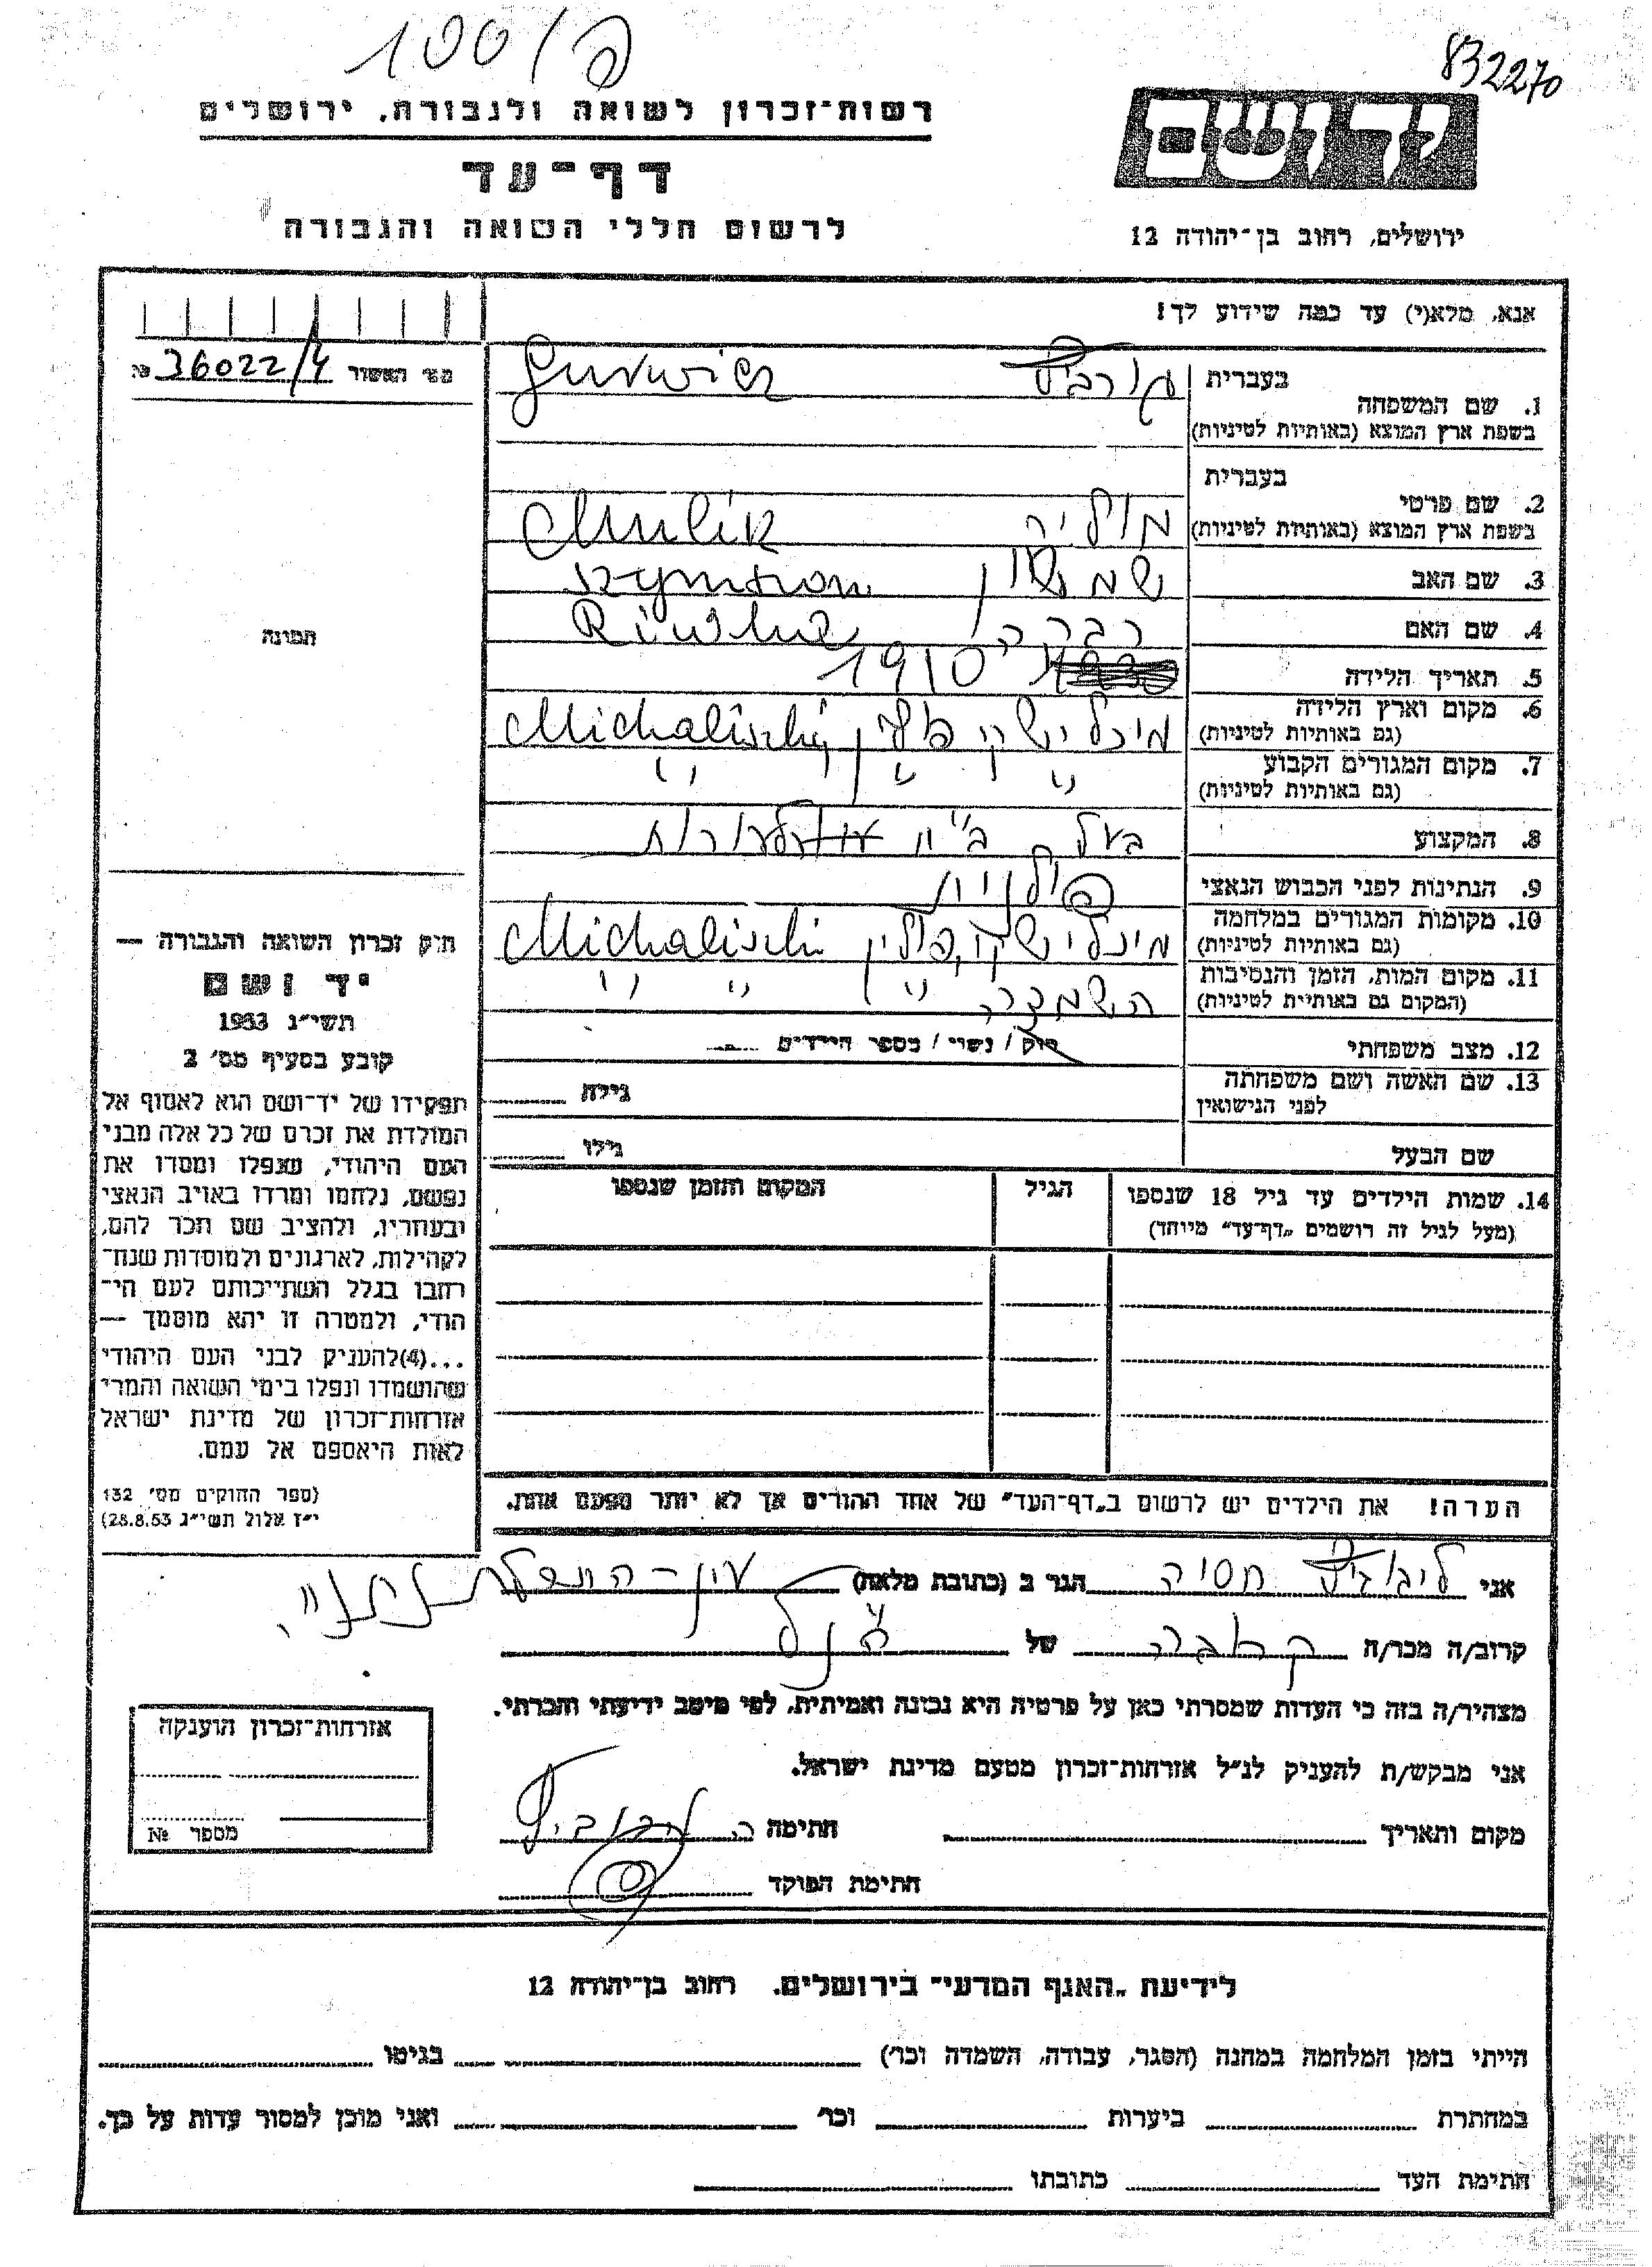 ק/1001
832270
רשות־זכרון לשואה ולגבורה, ירושלים
דף־עד
לרשום חללי השואה והגבורה
יד ושם
ירושלים, רחוב בן־יהודה 12
אנא, מלא(י) עד כמה שידוע לך!
מס׳ האשור № 36022/4
1. שם המשפחה בעברית גורביץ Gurwicz
בשפת ארץ המוצא (באותיות לטיניות)
בעברית
2. שם פרטי
בשפת ארץ המוצא (באותיות לטיניות) מוליק Mulik
3. שם האב שמשון Szymszon
4. שם האם רבקה Riwka
5. תאריך הלידה 1910
6. מקום וארץ הלידה (גם באותיות לטיניות) מיכלישקי פולין Michaliszki
7. מקום המגורים הקבוע (גם באותיות לטיניות) " " " "
8. המקצוע בעל בי"ח
9. הנתינות לפני הכבוש הנאצי פולנית
10. מקומות המגורים במלחמה (גם באותיות לטיניות) מיכלישקי, פולין Michaliszki
11. מקום המות, הזמן והנסיבות (המקום גם באותיות לטיניות) השמדה " " "
12. מצב משפחתי רוק / נשוי / מספר הילדים
13. שם האשה ושם משפחתה לפני הנישואין גילה
שם הבעל גילו
14. שמות הילדים עד גיל 18 שנספו
(מעל לגיל זה רושמים „דף־עד" מיוחד)
הגיל
המקום והזמן שנספו
הערה! את הילדים יש לרשום ב„דף־העד" של אחד ההורים אך לא יותר מפעם אחת.
תמונה
חוק זכרון השואה והגבורה —
יד ושם
תשי״ג 1953
קובע בסעיף מס׳ 2
תפקידו של יד־ושם הוא לאסוף אל
המולדת את זכרם של כל אלה מבני
העם היהודי, שנפלו ומסרו את
נפשם, נלחמו ומרדו באויב הנאצי
ובעוזריו, ולהציב שם וזכר להם,
לקהילות, לארגונים ולמוסדות שנח־
רבו בגלל השתייכותם לעם הי־
הודי, ולמטרה זו יהא מוסמך —
...(4)להעניק לבני העם היהודי
שהושמדו ונפלו בימי השואה והמרי
אזרחות־זכרון של מדינת ישראל
לאות היאספם אל עמם.
(ספר החוקים מס׳ 132
י״ז אלול תשי״ג 28.8.53)
אני ליבוביץ חסיה הגר ב (כתובת מלאה)
קרוב/ה מכר/ה קרובה של הנ"ל
מצהיר/ה בזה כי העדות שמסרתי כאן על פרטיה היא נכונה ואמיתית, לפי מיטב ידיעתי והכרתי.
אני מבקש/ת להעניק לנ״ל אזרחות־זכרון מטעם מדינת ישראל.
מקום ותאריך חתימה ח. ליבוביץ
חתימת הפוקד
אזרחות־זכרון הוענקה
מספר №
לידיעת „האגף המדעי" בירושלים. רחוב בן־יהודה 12
הייתי בזמן המלחמה במחנה (הסגר, עבודה, השמדה וכו׳) בגיטו
במחתרת ביערות וכו׳ ואני מוכן למסור עדות על כך.
חתימת העד כתובתו